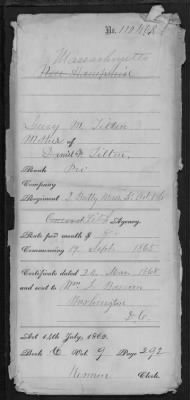 No. 112,408
Massachusetts
New Hampshire
Lucy M. Tilton
Mother of
Daniel W. Tilton
Rank Pri
Company
Regiment 3 Batty Mass Lt Art Vols
Concord Agency.
Rate per month $ 8
Commencing 19 Sept 1865
Certificate dated 26 Mar 1868
and sent to Wm E
Washington
D.C.
Act 14th July, 1862.
Book Vol. 9 Page 292
Clerk.